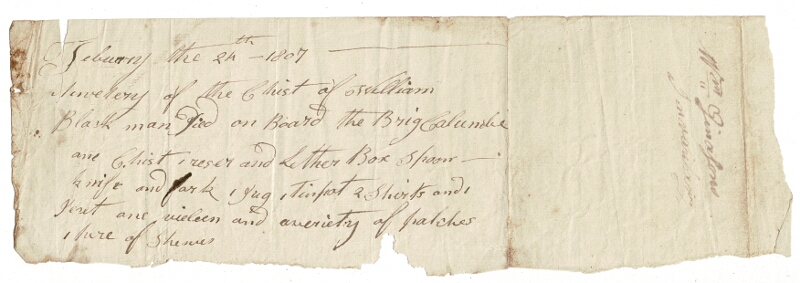 Febuary the 24th - 1807
Invetery of the Chist of William
Black man Died on Board the Brig Columbia
one Chist 1 reser and Lether Box spoon
knife and fork 1 Jug 1 tinpot 2 Shirts and 1
one vieleen and averiety of patches
1 pare of Shews
Wm
Inventory